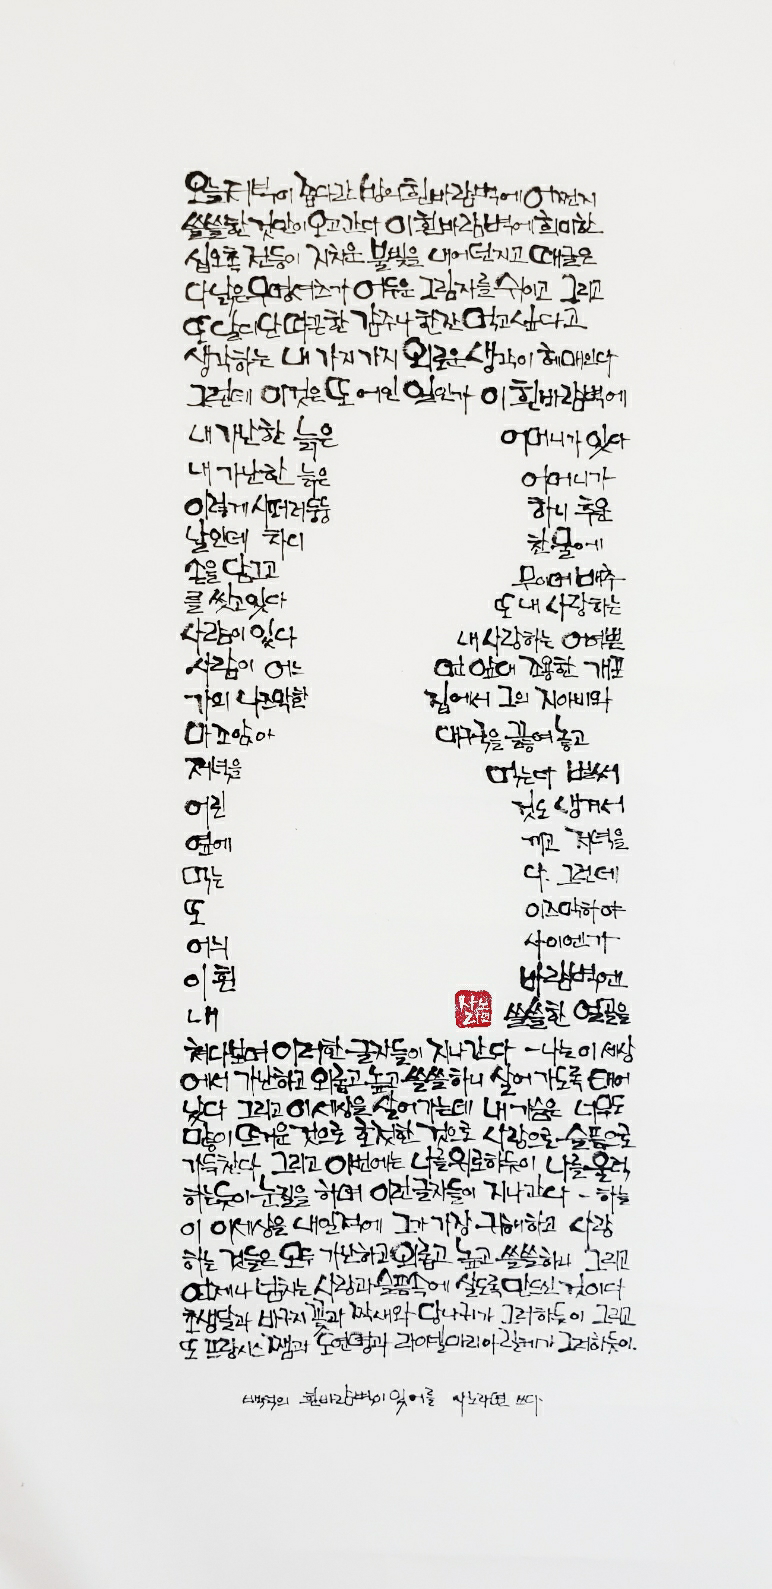 오늘저녁이 좁다란 방의 흰바람벽에 어쩐지
쓸쓸한 것만이 오고간다 이 흰바람벽에 희미한
십오촉 전등이 지치운 불빛을 내어던지고 때글은
다 낡은 무명셔츠가 어두운 그림자를 쉬이고 그리고
또 달디단 따끈한 감주나 한잔 먹고싶다고
생각하는 내 가지가지 외로운 생각이 헤매인다
그런데 이것은 또 어인 일인가 이 흰바람벽에
내 가난한 늙은 어머니가 있다
내 가난한 늙은 어머니가
이렇게 시퍼러둥둥 하니 추운
날인데 차디 찬 물에
손을 담그고 무이며 배추
를 씻고있다 또 내 사랑하는
사람이 있다 내 사랑하는 어여쁜
사람이 어느 먼 앞대 조용한 개포
가의 나즈막한 집에서 그의 지아비와
마조앉아 대구국을 끓여 놓고
저녁을 먹는다 벌써
어린 것도 생겨서
옆에 끼고 저녁을
먹는 다. 그런데
또 이즈막하야
어늬 사이엔가
이 흰 바람벽엔
내 쓸쓸한 얼골을
쳐다보며 이러한 글자들이 지나간다 - 나는 이 세상
에서 가난하고 외롭고 높고 쓸쓸하니 살어가도록 태어
났다 그리고 이 세상을 살어가는데 내 가슴은 너무도
많이 뜨거운 것으로 호젓한 것으로 사랑으로 슬픔으로
가득찬다 그리고 이번에는 나를 위로하듯이 나를 울력
하는듯이 눈질을 하며 이런 글자들이 지나간다 - 하늘
이 이세상을 내일적에 그가 가장 귀해하고 사랑
하는 것들은 모두 가난하고 외롭고 높고 쓸쓸하니 그리고
언제나 넘치는 사랑과 슬픔속에 살도록 만드신 것이다
초생달과 바구지꽃과 짝새와 당나귀가 그러하듯이 그리고
또 프랑시스 쨈과 도연명과 라이넬 마리아 릴케가 그러하듯이.
백석의 흰바람벽이 있어를 사노라면 쓰다.